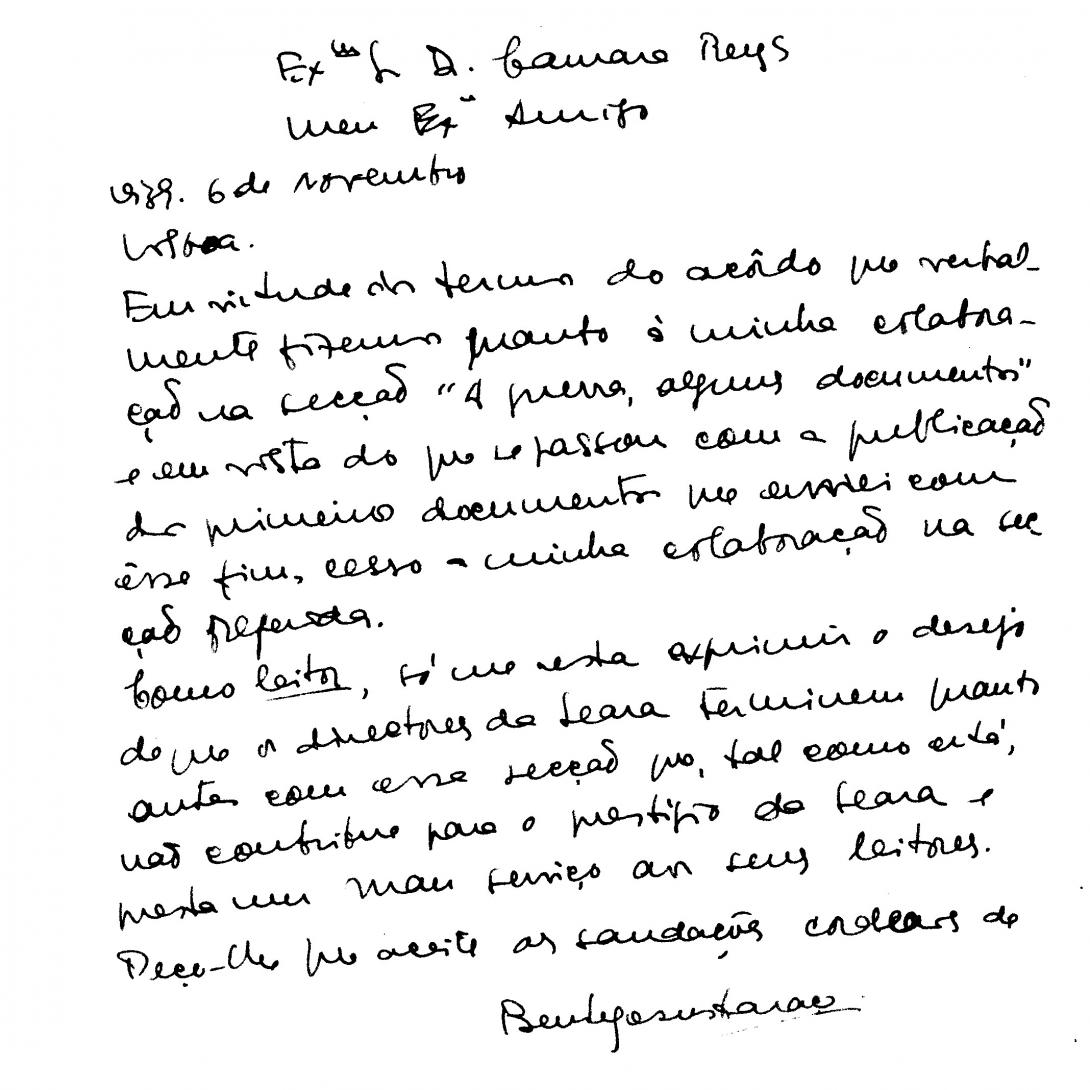 Exmo Sr Dr. Camara Reys
Meu Exmo Amigo
1939. 6 de novembro
Lisboa.
Em virtude dos termos do acôrdo que verbal-
mente fizemos quanto à minha colabora-
ção na secção "A guerra, alguns documentos"
e em vista do que se passou com a publicação
do primeiro documento que enviei com
êsse fim, cesso a minha colaboração na sec
ção referida.
Como leitor, só me resta exprimir o desejo
de que os directores da Seara terminem quanto
antes com essa secção que, tal como está,
não contribue para o prestígio da Seara e
presta um mau serviço aos seus leitores.
Peço-lhe que aceite as saudações cordeais de
Bento de Jesus Caraça